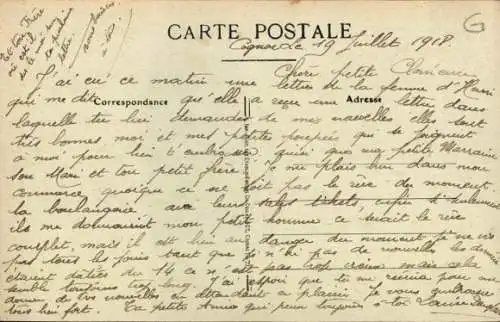 Et ton Frère
où est-il
dis le moi sur
ta prochaine
lettre.
CARTE POSTALE
Cognac Le 19 Juillet 1918.
Chère petite
J'ai eu ce matin une lettre de la femme d'Henri
Correspondance
Adresse
qui me dit qu'elle a reçu une lettre dans
laquelle tu lui demandes de mes nouvelles elles sont
très bonnes moi et mes petites poupées qui se joignent
à moi pour bien t'embrasser ainsi que ma petite Marraine
son Mari et ton petit frère. Je me plais bien dans mon
commerce quoique ce ne soit pas le rêve du moment
la boulangerie avec leurs sales tickets, enfin si seulement
ils me donnaient mon petit homme ce serait le rêve
complet, mais il est bien au danger du moment je ne vis
pas tous les jours tant que je n'ai pas de nouvelles les dernières
étaient datées du 14 ce n'est pas trop vieux mais cela
semble toujours trop long. J'ai espoir que tu me
donner de tes nouvelles en attendant ce plaisir Je vous
tous bien fort. Ta petite Amie qui pense toujours à toi